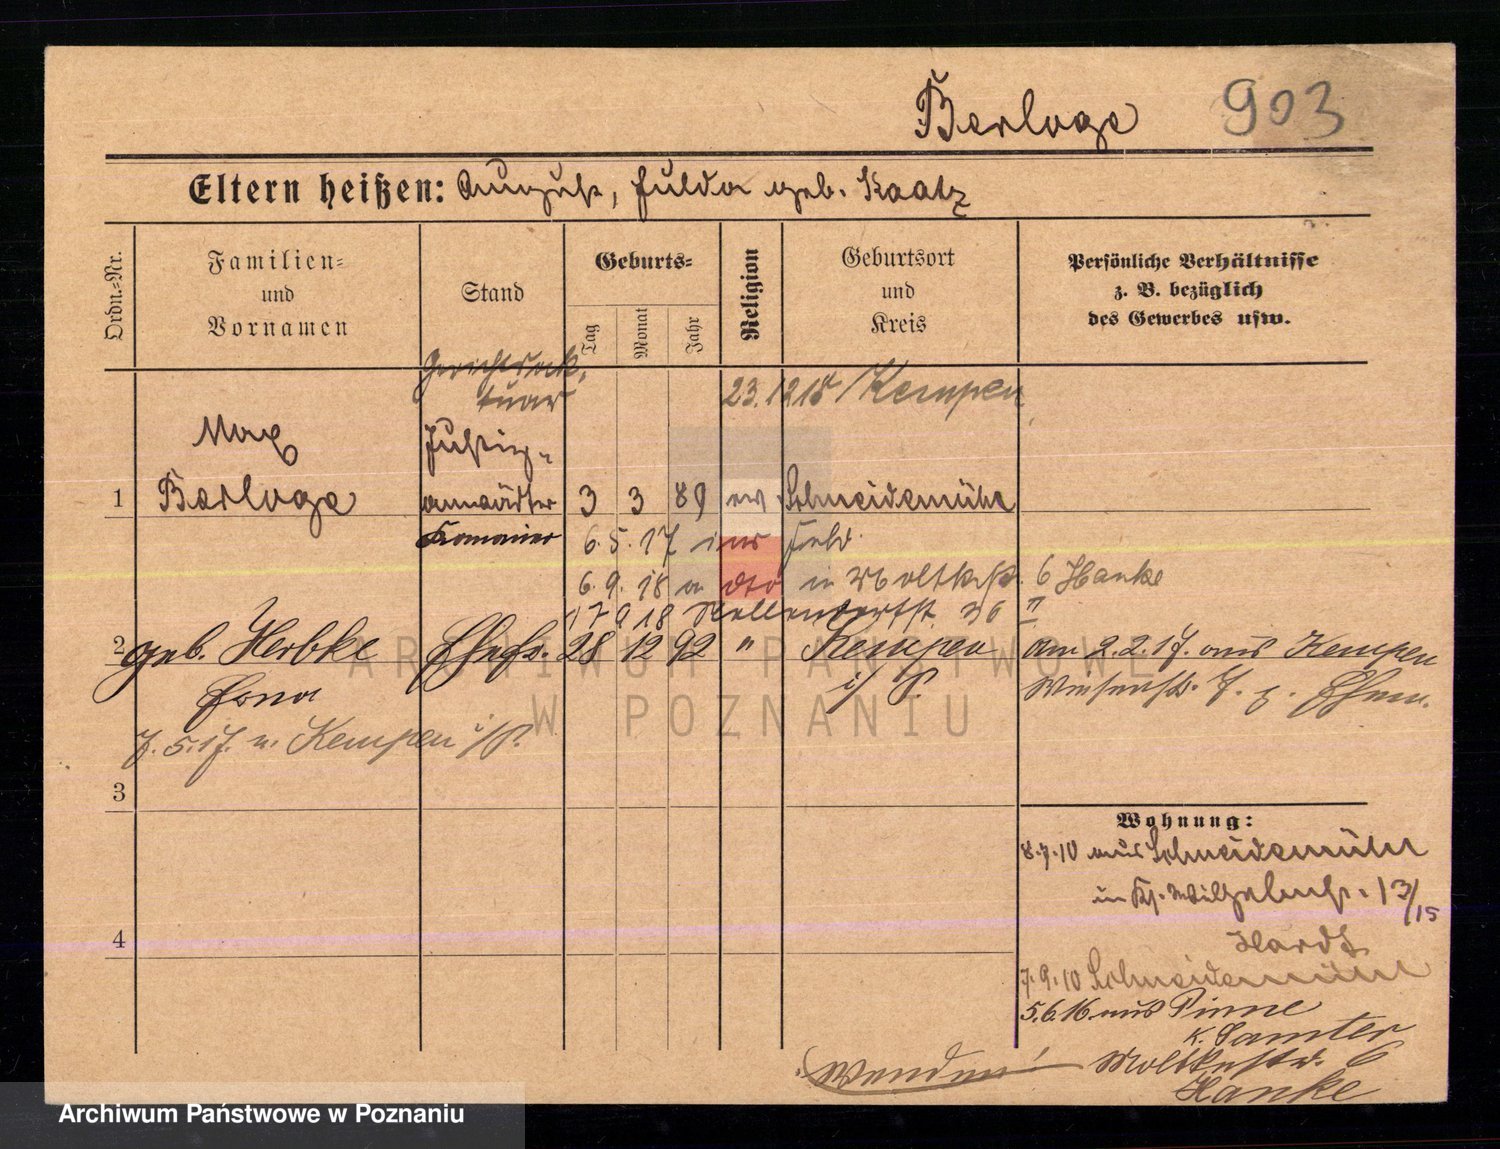 Berloge 903
Eltern heißen: August, Hulda geb. Kaatz
Ordn.=Nr.
Familien=
und
Vornamen
Stand
Geburts=
Tag
Monat
Jahr
Religion
Geburtsort
und
Kreis
Persönliche Verhältnisse
z. B. bezüglich
des Gewerbes usw.
Gerichtsak-
tuar
23.12 18 Kempen
Max
Justiz-
1 Berloge anwärter 3 3 89 ev Schneidemühl
6.5.17 ins Feld.
6.9.18 a dto in Moltkestr. 6 Hanke
17 9 18 36 "
2 geb. Herbke Ehefr. 28 12 92 " Kempen am 2.2.17. aus Kempen
Erna i/P. 7. z. Ehem.
7.5.17. n. Kempen i/P.
3
Wohnung:
8.7.10 aus Schneidemühl
in Kl. Wilhelmstr. 13/15
4
Hardt
7.9.10 Schneidemühl
5.6.16. aus Pinne
K. Samter
Wenden! Moltkestr. 6
Hanke
ARCHIWUM PAŃSTWOWE
W POZNANIU
Archiwum Państwowe w Poznaniu